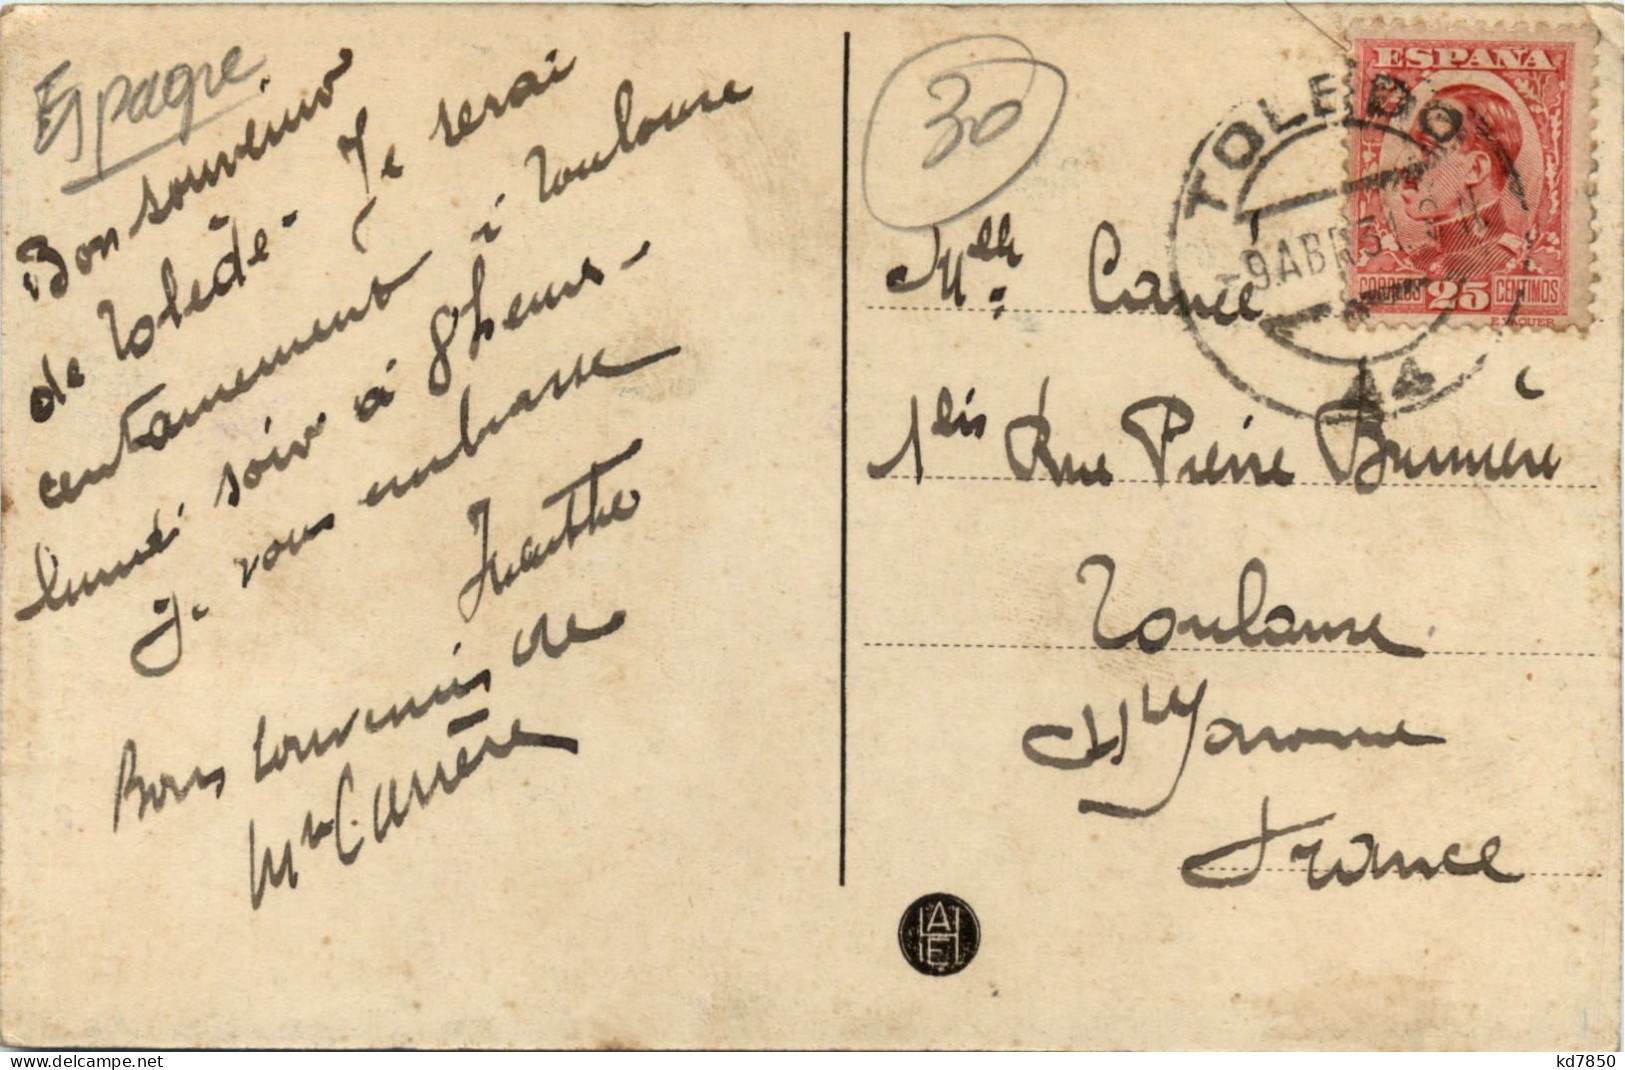 Espagne
Bon souvenir
de Tolède - Je serai
certainement à Toulouse
lundi soir à 8 heures -
Je vous embrasse
Bons souvenirs de
Mr Carrère
30
ESPAÑA
CORREOS 25 CENTIMOS
E. VAQUER
TOLEDO
-9 ABR 31
Melle Carrère
1 bis Rue Pierre Brunière
Toulouse
Hte Garonne
France
AHE
delcampe.net
kd7850